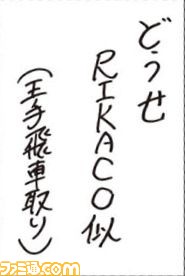 どうせ
RIKACO似
（王手飛車取り）
ファミ通.com